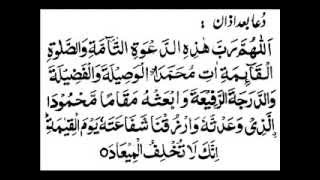 دُعا بعد اذان :
اَللّٰهُمَّ رَبَّ هٰذِهِ الدَّعْوَةِ التَّآمَّةِ وَالصَّلٰوةِ
الْقَآئِمَةِ اٰتِ مُحَمَّدَا ۨالْوَسِيْلَةَ وَالْفَضِيْلَةَ
وَالدَّرَجَةَ الرَّفِيْعَةَ وَابْعَثْهُ مَقَامًا مَّحْمُوْدَا
ۨالَّذِىْ وَعَدْتَّهٗ وَارْزُقْنَا شَفَاعَتَهٗ يَوْمَ الْقِيٰمَةِ
اِنَّكَ لَا تُخْلِفُ الْمِيْعَادَ ○